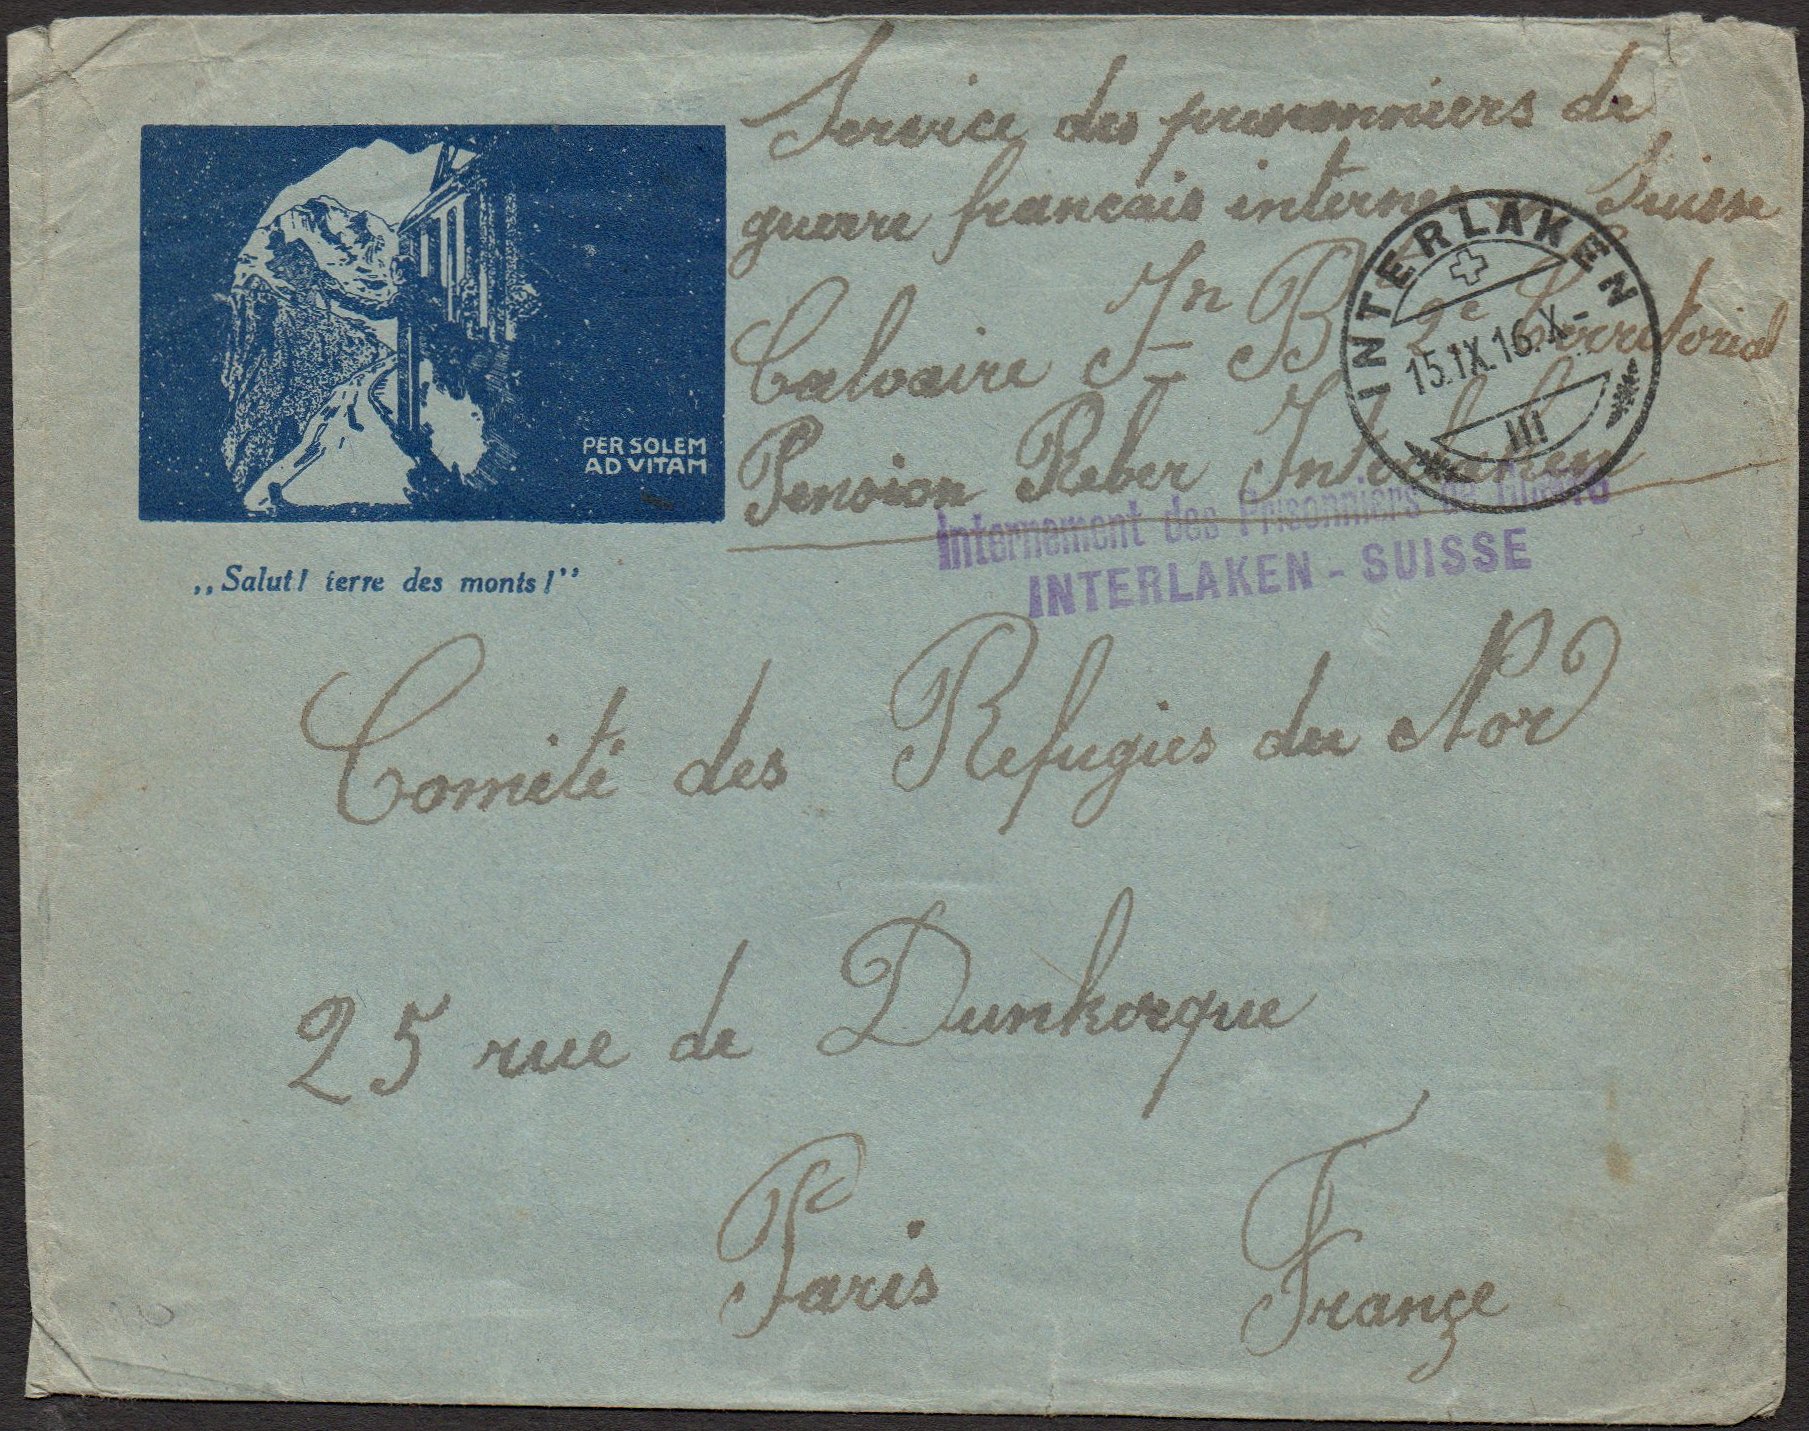 Service des prisonniers de
guerre français internes Suisse
Calvaire Jn Bte 2e territorial
Pension Reber Interlaken
INTERLAKEN
15.IX.16.X-
III
Internement des Prisonniers de Guerre
INTERLAKEN - SUISSE
PER SOLEM
AD VITAM
„Salut! terre des monts!”
Comité des Refugies du Nord
25 rue de Dunkerque
Paris Françe